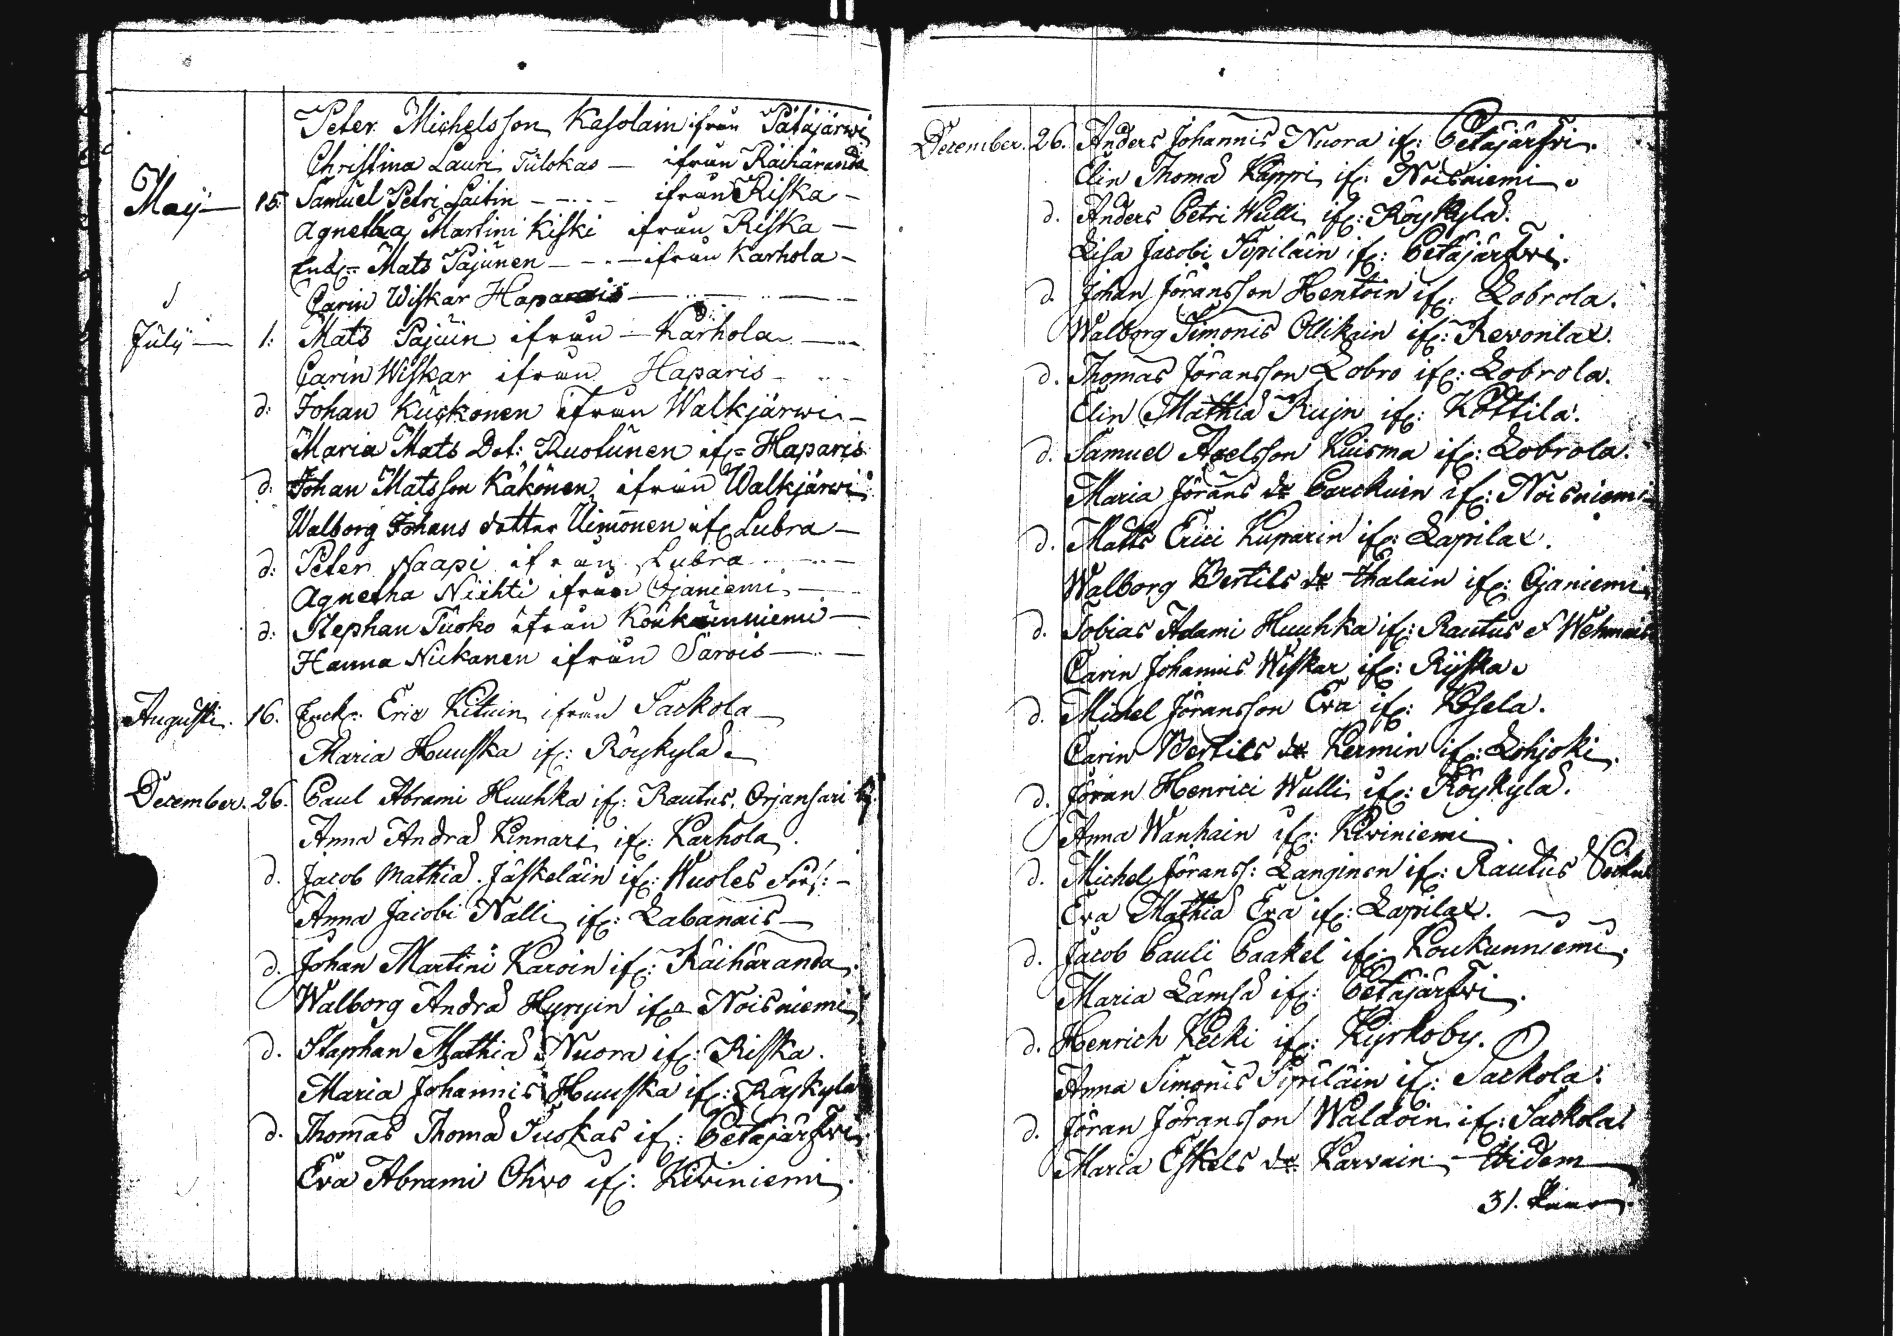 Peter Michelsson Kasolain ifrån Pätäjärwi
Christina Lauri Tulokas — ifrån Räihäranda
Maij — 15. Samuel Petri Laitin - - - - ifrån Riska -
Agnetha Martini Kiski ifrån Riska —
Enkl= Mats Pajunen - - - - ifrån Karhola -
Carin Wiskar Haparis — — —
July — 1: Mats Pajuin ifrån - Karhola —
Carin Wiskar ifrån Haparis - -
d: Johan Kuckonen ifrån Walkjärwi -
Maria Mats Dot: Ruotunen if= Haparis
d: Johan Matsson Käkönen ifrån Walkjärwi
Walborg Johans dotter Uimonen if: Lubra —
d: Peter Naapi ifrån Lubra - - - —
Agnetha Niihti ifrån Ojaniemi —
d: Stephan Tuoko ifrån Koukunniemi —
Hanna Nickanen ifrån Sarois — —
Augusti. 16. Enckl: Eric Kituin ifrån Sackola —
Maria Huuska if: Röykylä
December. 26. Paul Abrami Huuhka if: Rautus, Orjansari
Anna Andræ Kinnari if: Karhola.
d. Jacob Mathiæ Jäskeläin if: Wuoles För: -
Anna Jacobi Nalli if: Labanais —
d. Johan Martini Karoin if: Räihäranda.
Walborg Andræ Hyryin if: Noisniemi
d. Staphan Mathiæ Nuora if: Risska.
Maria Johannis Huuska if: Röykylä
d. Thomas Thomæ Tuokas if: Petäjärfwi.
Eva Abrami Ohvo if: Kiviniemi.
December. 26. Anders Johannis Nuora if: Petäjärfwi.
Elin Thomæ Käppi if: Noisniemi.
d. Anders Petri Wulli if: Röykylä.
Lisa Jacobi Sipiläin if: Petäjärfwi.
d. Johan Jöransson Hentoin if: Lobrola.
Walborg Simonis Ollikain if: Revonlax.
d. Thomas Jöransson Lobro if: Lobrola.
Elin Mathiæ Kujn if: Kottila.
d. Samuel Axelsson Kuisma if: Lobrola.
Maria Jörans dr Parckuin if: Noisniemi
d. Matts Erici Kuparin if: Lapilax.
Walborg Bertils dr Ihalain if: Ojaniemi
d. Tobias Adami Huuhka if: Rautus
Carin Johannis Wiskar if: Rijska
d. Michel Jöransson Eva if: Kosela.
Carin Bertils dr Kermin if: Lohjoki.
d. Jöran Henrici Wulli if: Röykylä.
Anna Wanhain if: Kiviniemi
d. Michel Jöranss: Langinen if: Rautus
Eva Mathiæ Eva if: Lapilax.
d. Jacob Pauli Paakel if: Koukunniemi.
Maria Lämsä if: Petäjärfwi.
d. Henrich Kecki if: Kyrkoby.
Anna Simonis Sipiläin if: Sackola.
d. Jöran Jöransson Waldoin if: Sackola
Maria Eskels dr Karvain Ibidem
31.